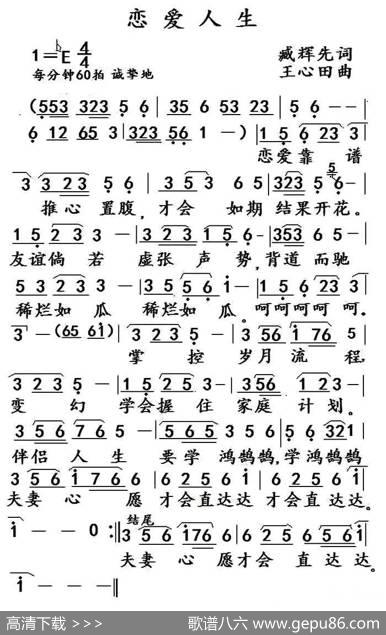 恋爱人生
1=♭E 4/4
臧辉先词
每分钟60拍 诚挚地
王心田曲
(553 323 5 6 | 35 6 53 23 | 5 6 - - |
6 12 65 3 | 323 56 1 -) | 1 5 6 23 3 |
恋爱靠 谱
3 3 2 3 5 6 | 3 5 3 6 5 | 323 5 6 - |
推心 置腹，才会 如期 结果开花。
1 5 2 3 3 - | 3 2 3 1 5 6 - | 353 6 5 - |
友谊倘 若 虚张 声 势，背道 而驰
5 3 2 3 3 - | 3 5 5 6 i - | 1 5 6 23 3 |
稀烂如 瓜 稀烂如 瓜。呵呵呵呵 呵。
3 - (65 6i) | 3 2 3 5 - | 3 56 i 76 5 |
掌 控 岁月 流 程，
3 2 3 5 - | 1 5 2 5 3 - | 3 56 1 2 3 - |
变 幻 学会握 住 家庭 计 划。
3 5 6 7 6 5 - | 5 6 5 3 5 6 | 5 6 321 |
伴侣 人 生 要 学 鸿鹄鹄，学鸿鹄鹄
3 5 6 i 7 6 6 | 6 2 5 6 5 6 i | 6 2 5 6 5 6 i |
夫妻 心 愿 才会直达达 才会 直达 达。
i - - 0 :‖ 结尾 3 5 6 i76 6 | 6 2 5 6 | 6 2 5 6 i |
夫妻 心 愿才会 直达达。
i - - - ‖
高清下载 >>>
歌谱八六 www.gepu86.com